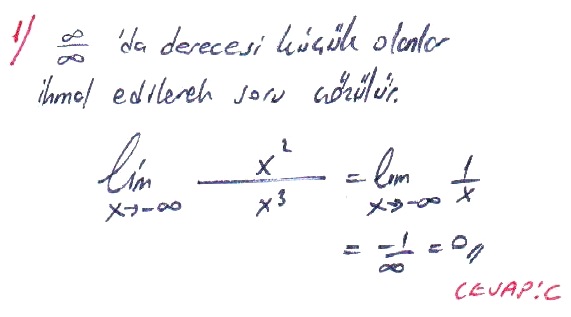 1) ∞/∞ 'da derecesi küçük olanlar
ihmal edilerek soru çözülür.
lim x→-∞ x²/x³ = lim x→-∞ 1/x
= -1/∞ = 0//
CEVAP: C